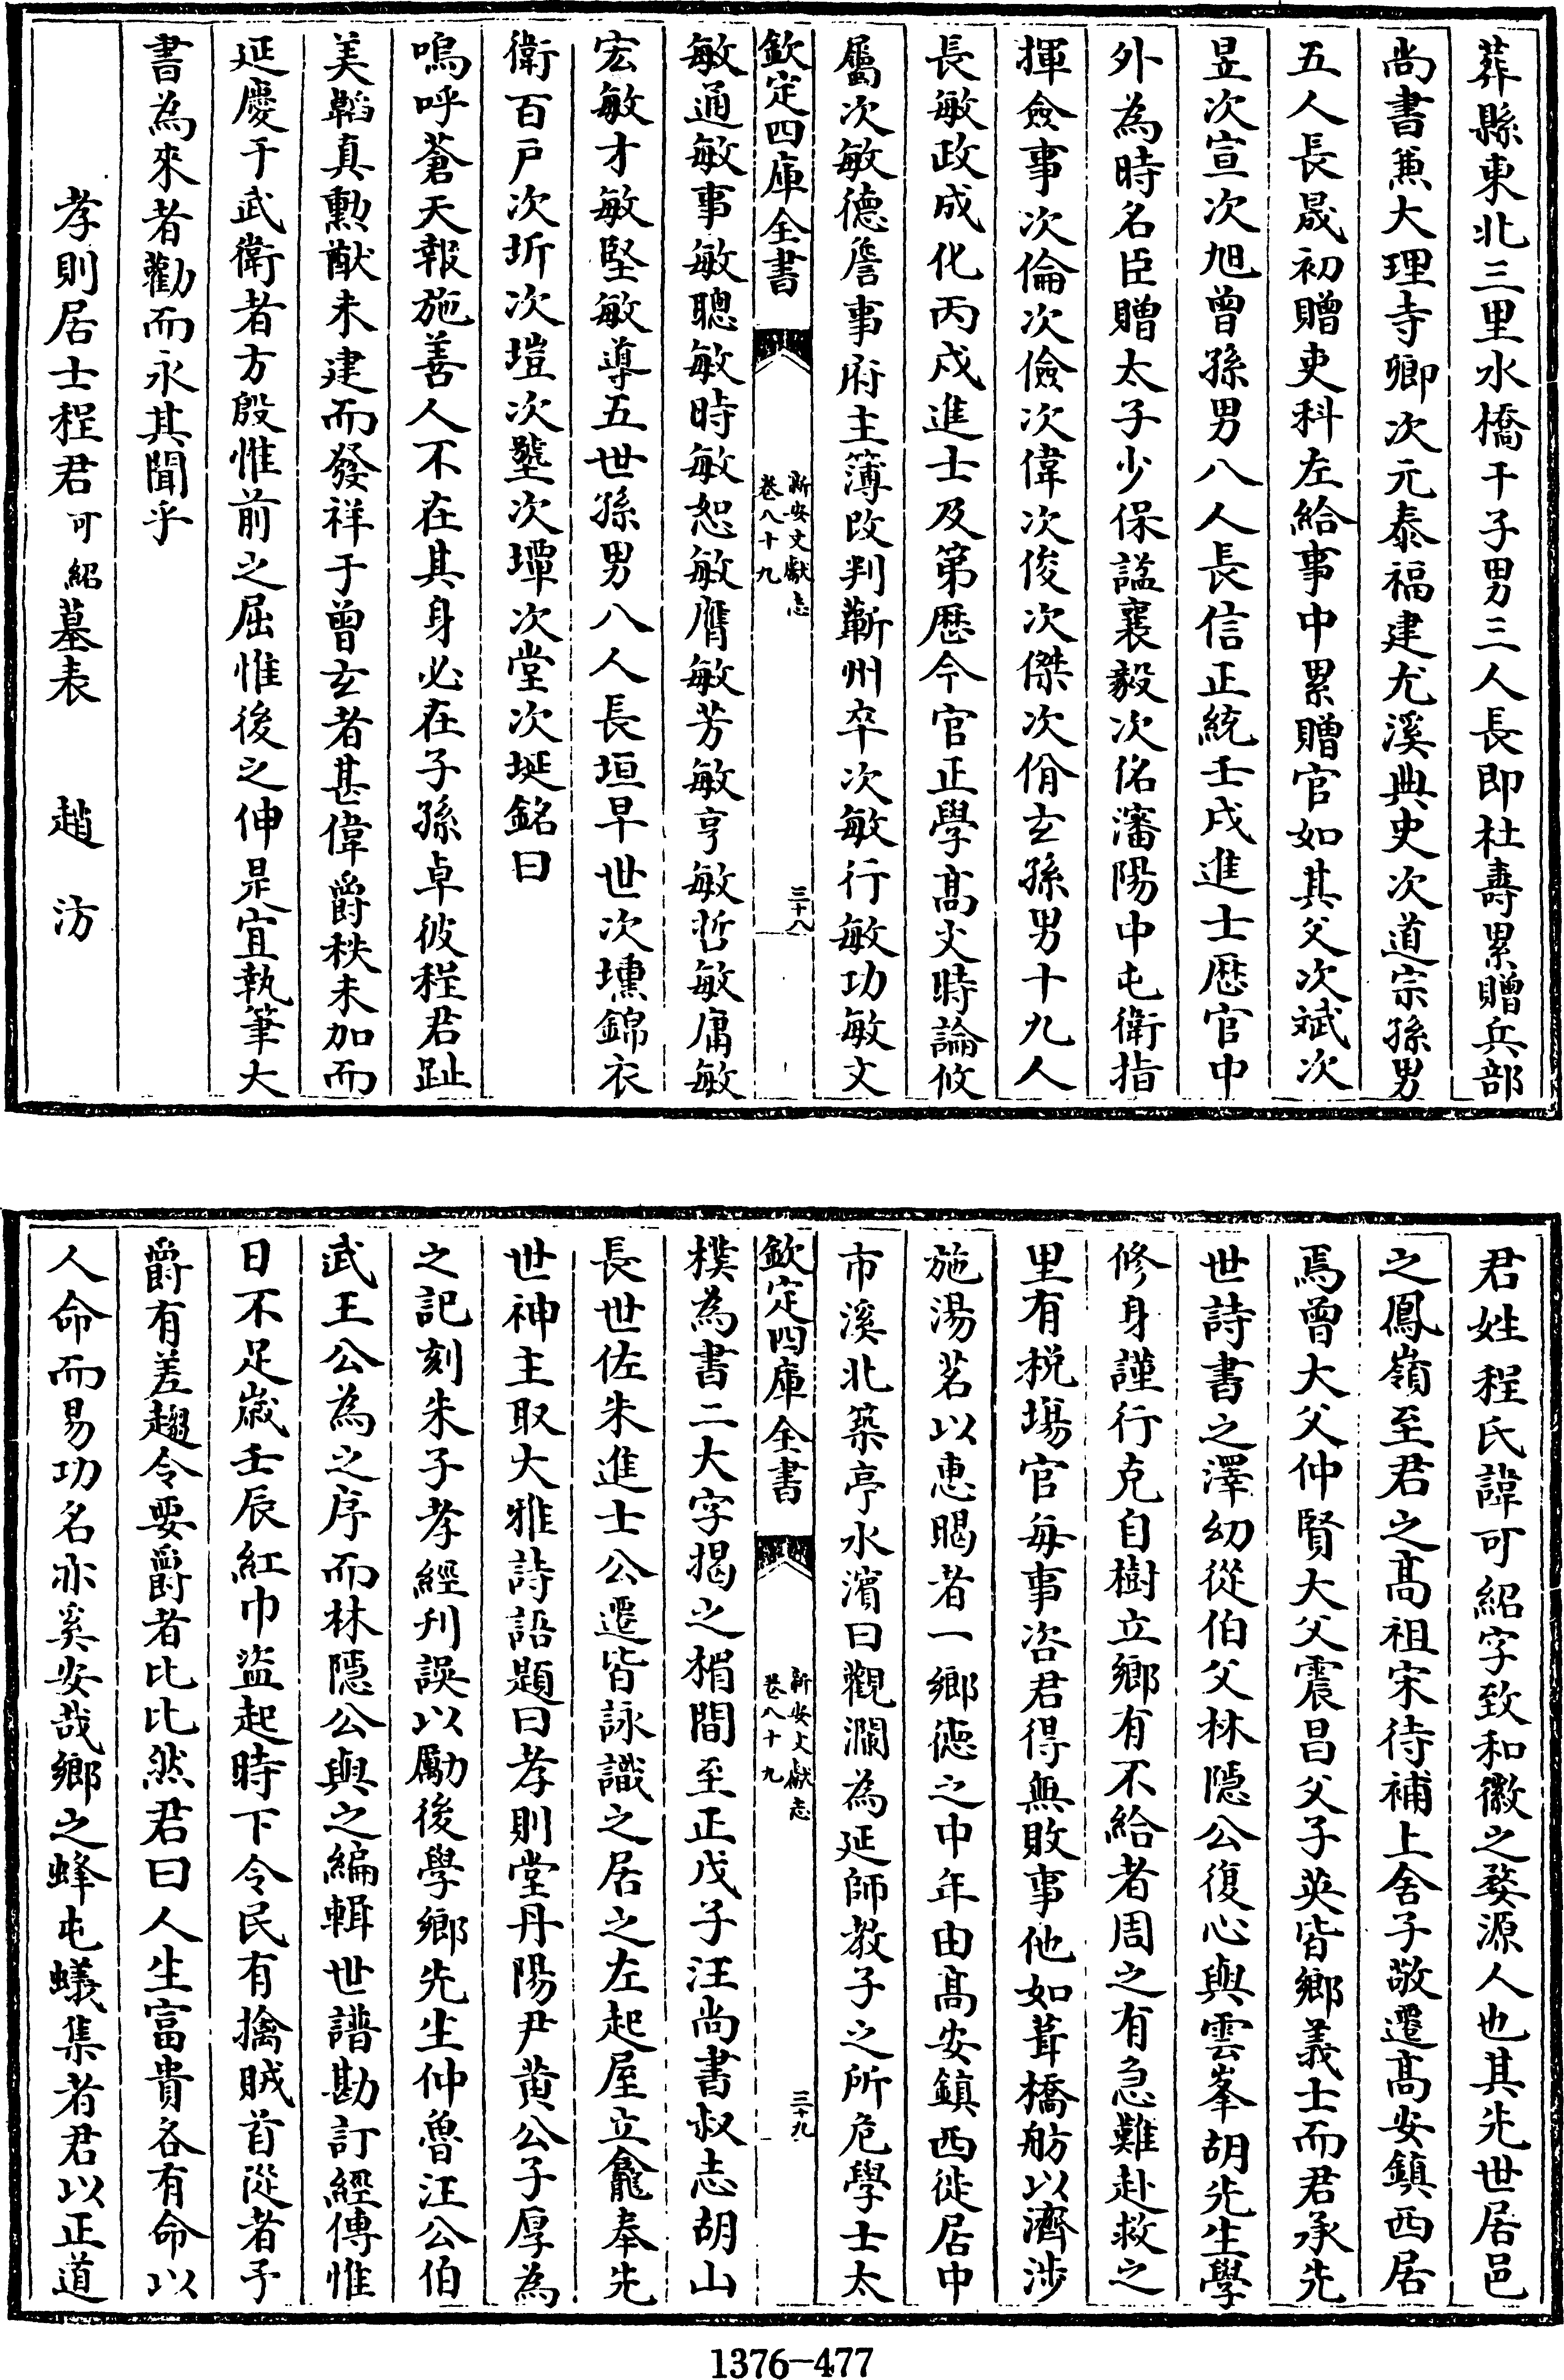 葬縣東北三里水橋干子男三人長即杜壽累贈兵部
尚書兼大理寺卿次元泰福建尤溪典史次道宗孫男
五人長晟初贈吏科左給事中累贈官如其父次斌次
昱次宣次旭曾孫男八人長信正統壬戌進士歴官中
外為時名臣贈太子少保諡襄毅次佲瀋陽中屯衛指
揮僉事次倫次儉次偉次俊次傑次佾玄孫男十九人
長敏政成化丙戌進士及第歴今官正學髙文時論攸
屬次敏德詹事府主簿改判蘄州卒次敏行敏功敏文
欽定四庫全書
新安文獻志
卷八十九
三十八
敏通敏事敏聰敏時敏恕敏膺敏芳敏亨敏哲敏庸敏
宏敏才敏堅敏導五世孫男八人長垣早世次壎錦衣
衛百戸次圻次塏次壂次墰次堂次埏銘曰
嗚呼蒼天報施善人不在其身必在子孫卓彼程君趾
美韜真勲猷未建而發祥于曾玄者甚偉爵秩未加而
延慶于武衛者方殷惟前之屈惟後之伸是宜執筆大
書為來者勸而永其聞乎
孝則居士程君可紹墓表 趙汸
君姓程氏諱可紹字致和徽之婺源人也其先世居邑
之鳳嶺至君之髙祖宋待補上舍子敬遷髙安鎮西居
焉曾大父仲賢大父震昌父子英皆鄉義士而君承先
世詩書之澤幼從伯父林隠公復心與雲峯胡先生學
修身謹行克自樹立鄉有不給者周之有急難赴救之
里有税場官毎事咨君得無敗事他如葺橋舫以濟涉
施湯茗以惠暍者一鄉德之中年由髙安鎮西徙居中
市溪北築亭水濱曰觀瀾為延師教子之所危學士太
欽定四庫全書
新安文獻志
卷八十九
三十九
樸為書二大字揭之楣間至正戊子汪尚書叔志胡山
長世佐朱進士公遷皆詠識之居之左起屋立龕奉先
世神主取大雅詩語題曰孝則堂丹陽尹黄公子厚為
之記刻朱子孝經刋誤以勵後學鄉先生仲魯汪公伯
武王公為之序而林隠公與之編輯世譜勘訂經傳惟
日不足嵗壬辰紅巾盜起時下令民有擒賊首從者予
爵有差趨令要爵者比比然君曰人生富貴各有命以
人命而易功名亦奚安哉鄉之蜂屯蟻集者君以正道
1376-477